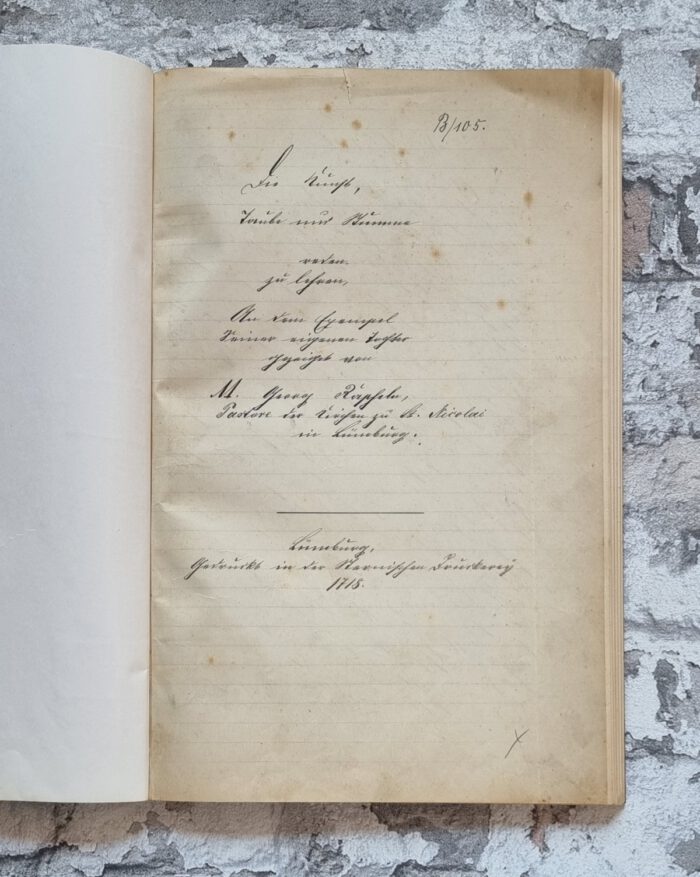 B/105.
Die Kunst,
Taube und Stumme
reden
zu lehren,
An dem Exempel
Seiner eigenen Tochter
gezeiget von
M. Georg Räpheln,
Pastore der Kirchen zu St. Nicolai
in Lüneburg.
Lüneburg,
Gedruckt in der Sternischen Druckerey
1718.